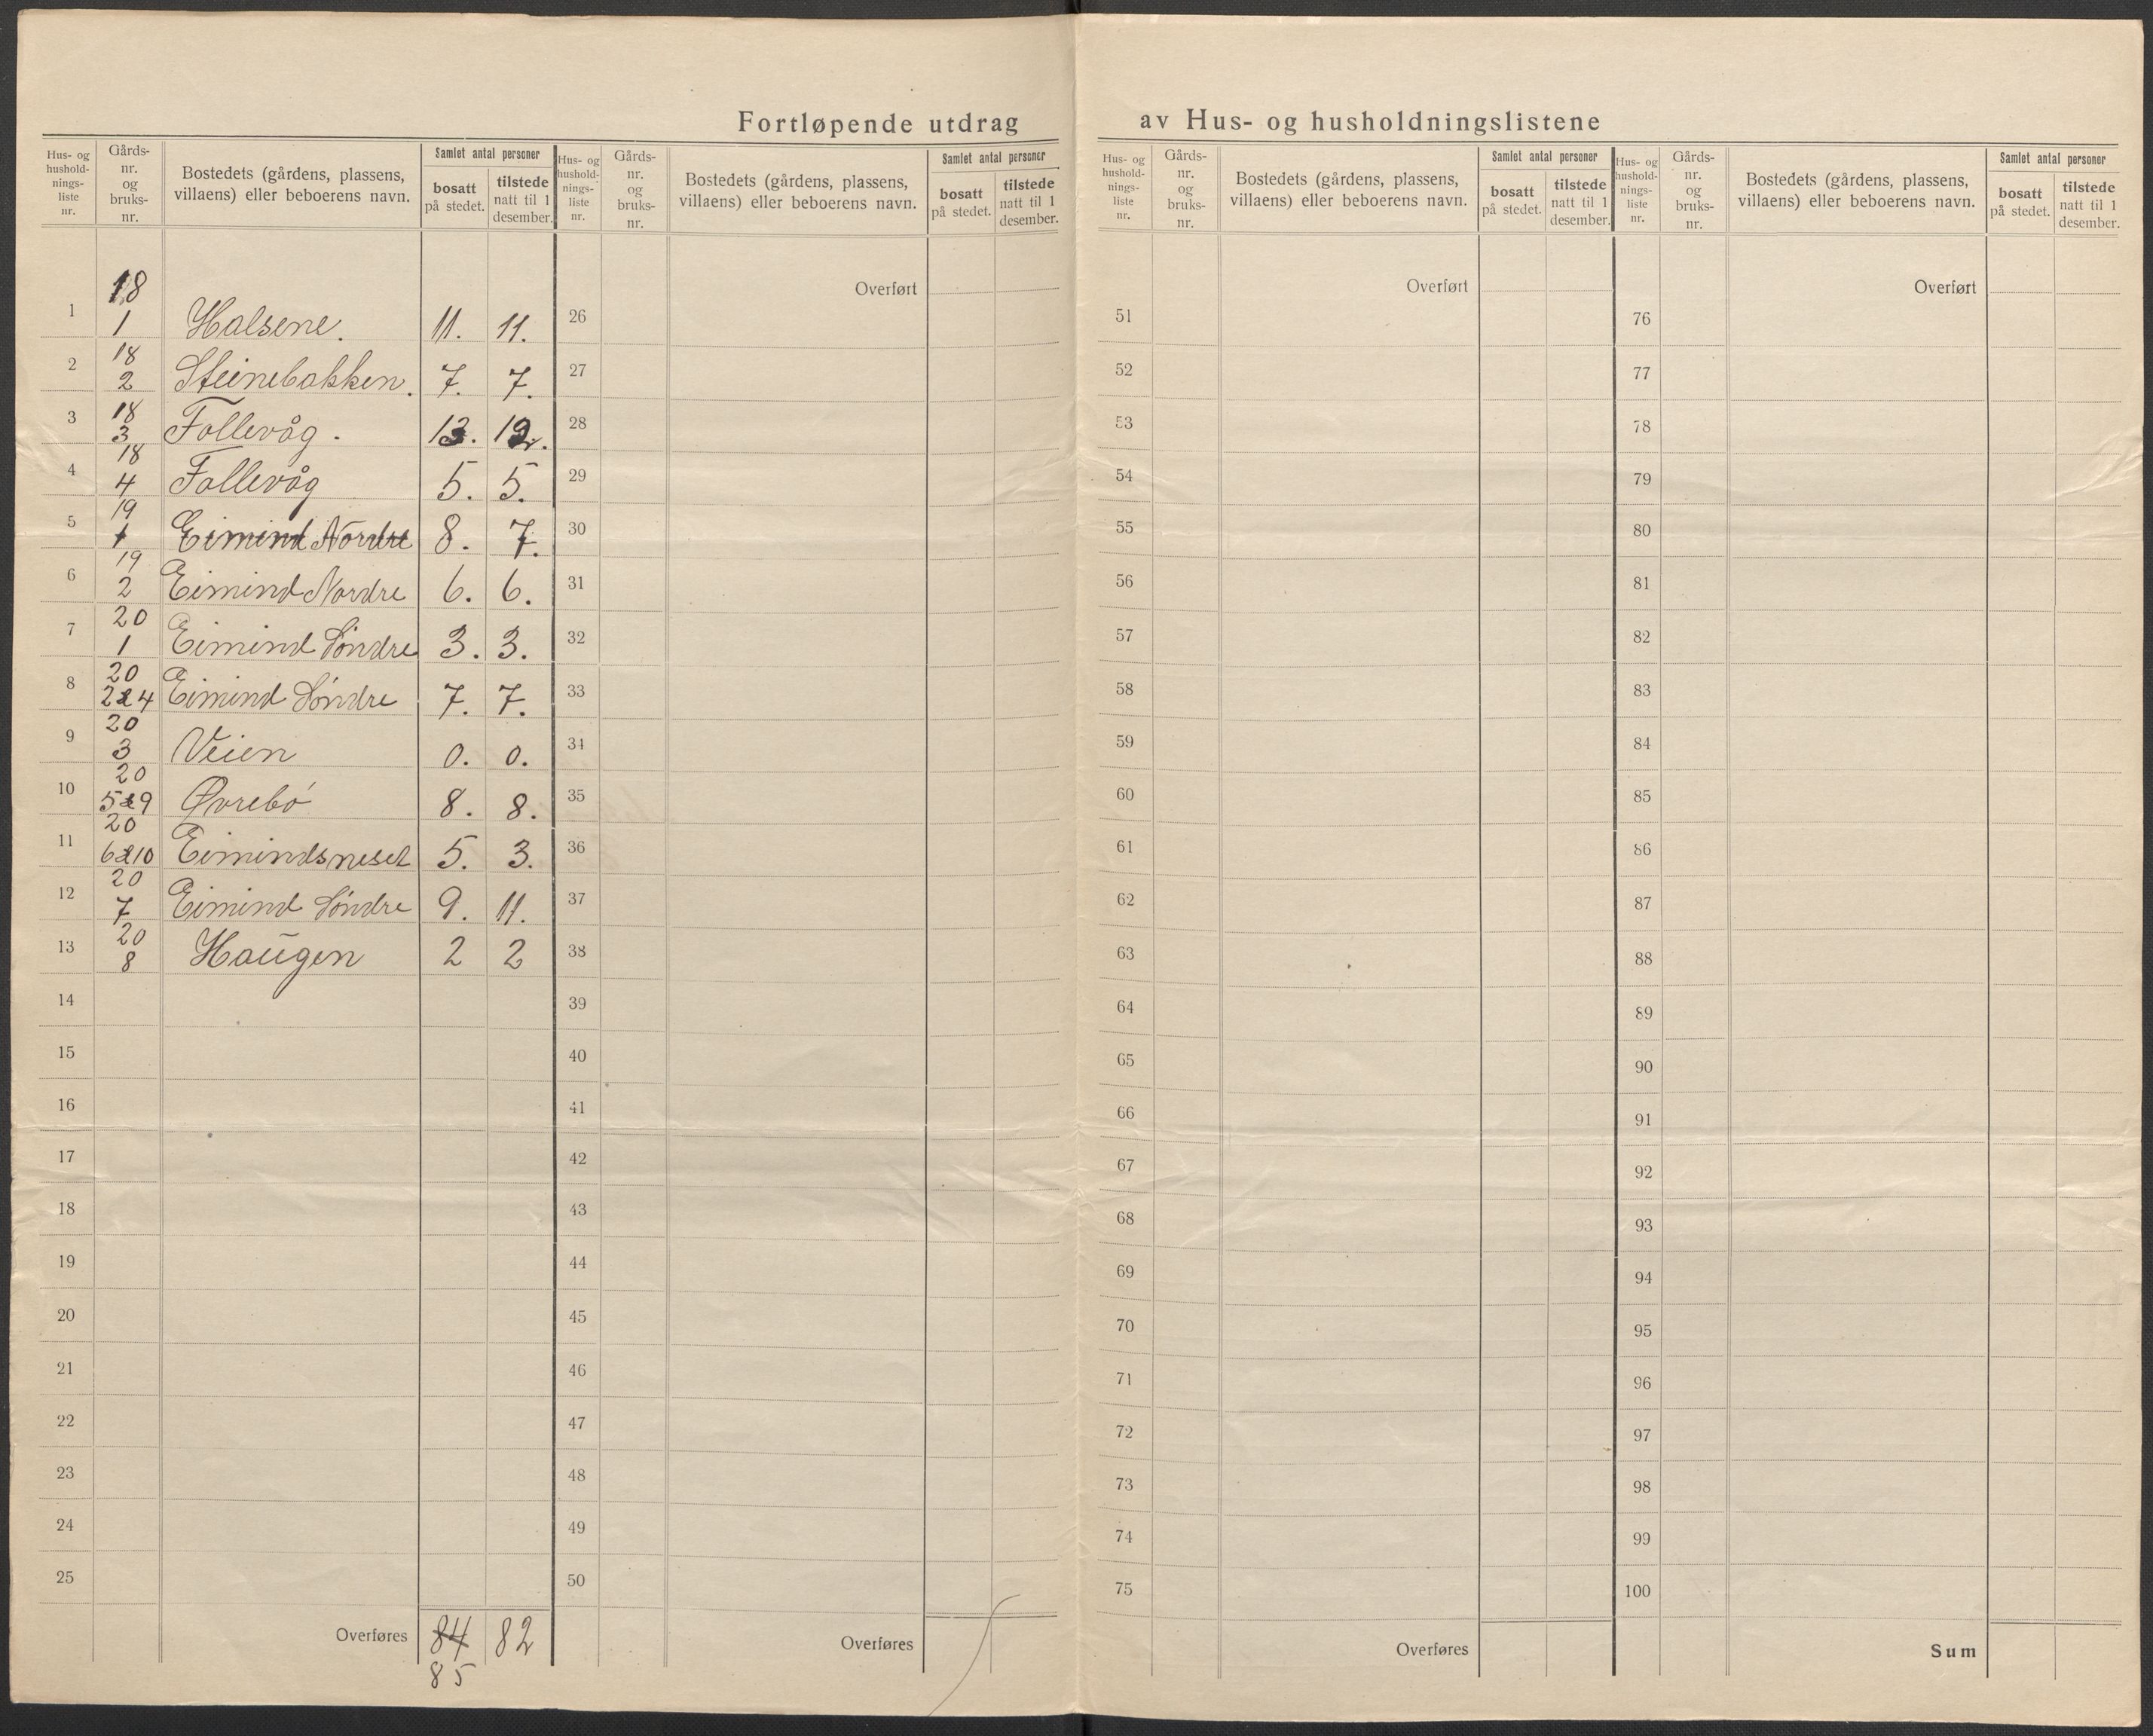 Fortløpende utdrag av Hus- og husholdningslistene
Hus- og hushold- nings- liste nr. | Gårds- nr. og bruks- nr. | Bostedets (gårdens, plassens, villaens) eller beboerens navn. | Samlet antal personer | bosatt på stedet. | tilstede natt til 1 desember.
1 | 18 1 | Halsene. | 11. | 11.
2 | 18 2 | Steinebakken. | 7. | 7.
3 | 18 3 | Follevåg. | 13. | 12.
4 | 18 4 | Follevåg | 5. | 5.
5 | 19 1 | Eimind Nordre | 8. | 7.
6 | 19 2 | Eimind Nordre | 6. | 6.
7 | 20 1 | Eimind Söndre | 3. | 3.
8 | 20 2&4 | Eimind Söndre | 7. | 7.
9 | 20 3 | Veien | 0. | 0.
10 | 20 5&9 | Øvrebö | 8. | 8.
11 | 20 6&10 | Eimindsneset | 5. | 3.
12 | 20 7 | Eimind Söndre | 9. | 11.
13 | 20 8 | Haugen | 2 | 2
14
15
16
17
18
19
20
21
22
23
24
25
Overføres | 84 | 82
85
Hus- og hushold- nings- liste nr. | Gårds- nr. og bruks- nr. | Bostedets (gårdens, plassens, villaens) eller beboerens navn. | Samlet antal personer | bosatt på stedet. | tilstede natt til 1 desember.
Overført
26
27
28
29
30
31
32
33
34
35
36
37
38
39
40
41
42
43
44
45
46
47
48
49
50
Overføres
Hus- og hushold- nings- liste nr. | Gårds- nr. og bruks- nr. | Bostedets (gårdens, plassens, villaens) eller beboerens navn. | Samlet antal personer | bosatt på stedet. | tilstede natt til 1 desember.
Overført
51
52
53
54
55
56
57
58
59
60
61
62
63
64
65
66
67
68
69
70
71
72
73
74
75
Overføres
Hus- og hushold- nings- liste nr. | Gårds- nr. og bruks- nr. | Bostedets (gårdens, plassens, villaens) eller beboerens navn. | Samlet antal personer | bosatt på stedet. | tilstede natt til 1 desember.
Overført
76
77
78
79
80
81
82
83
84
85
86
87
88
89
90
91
92
93
94
95
96
97
98
99
100
Sum